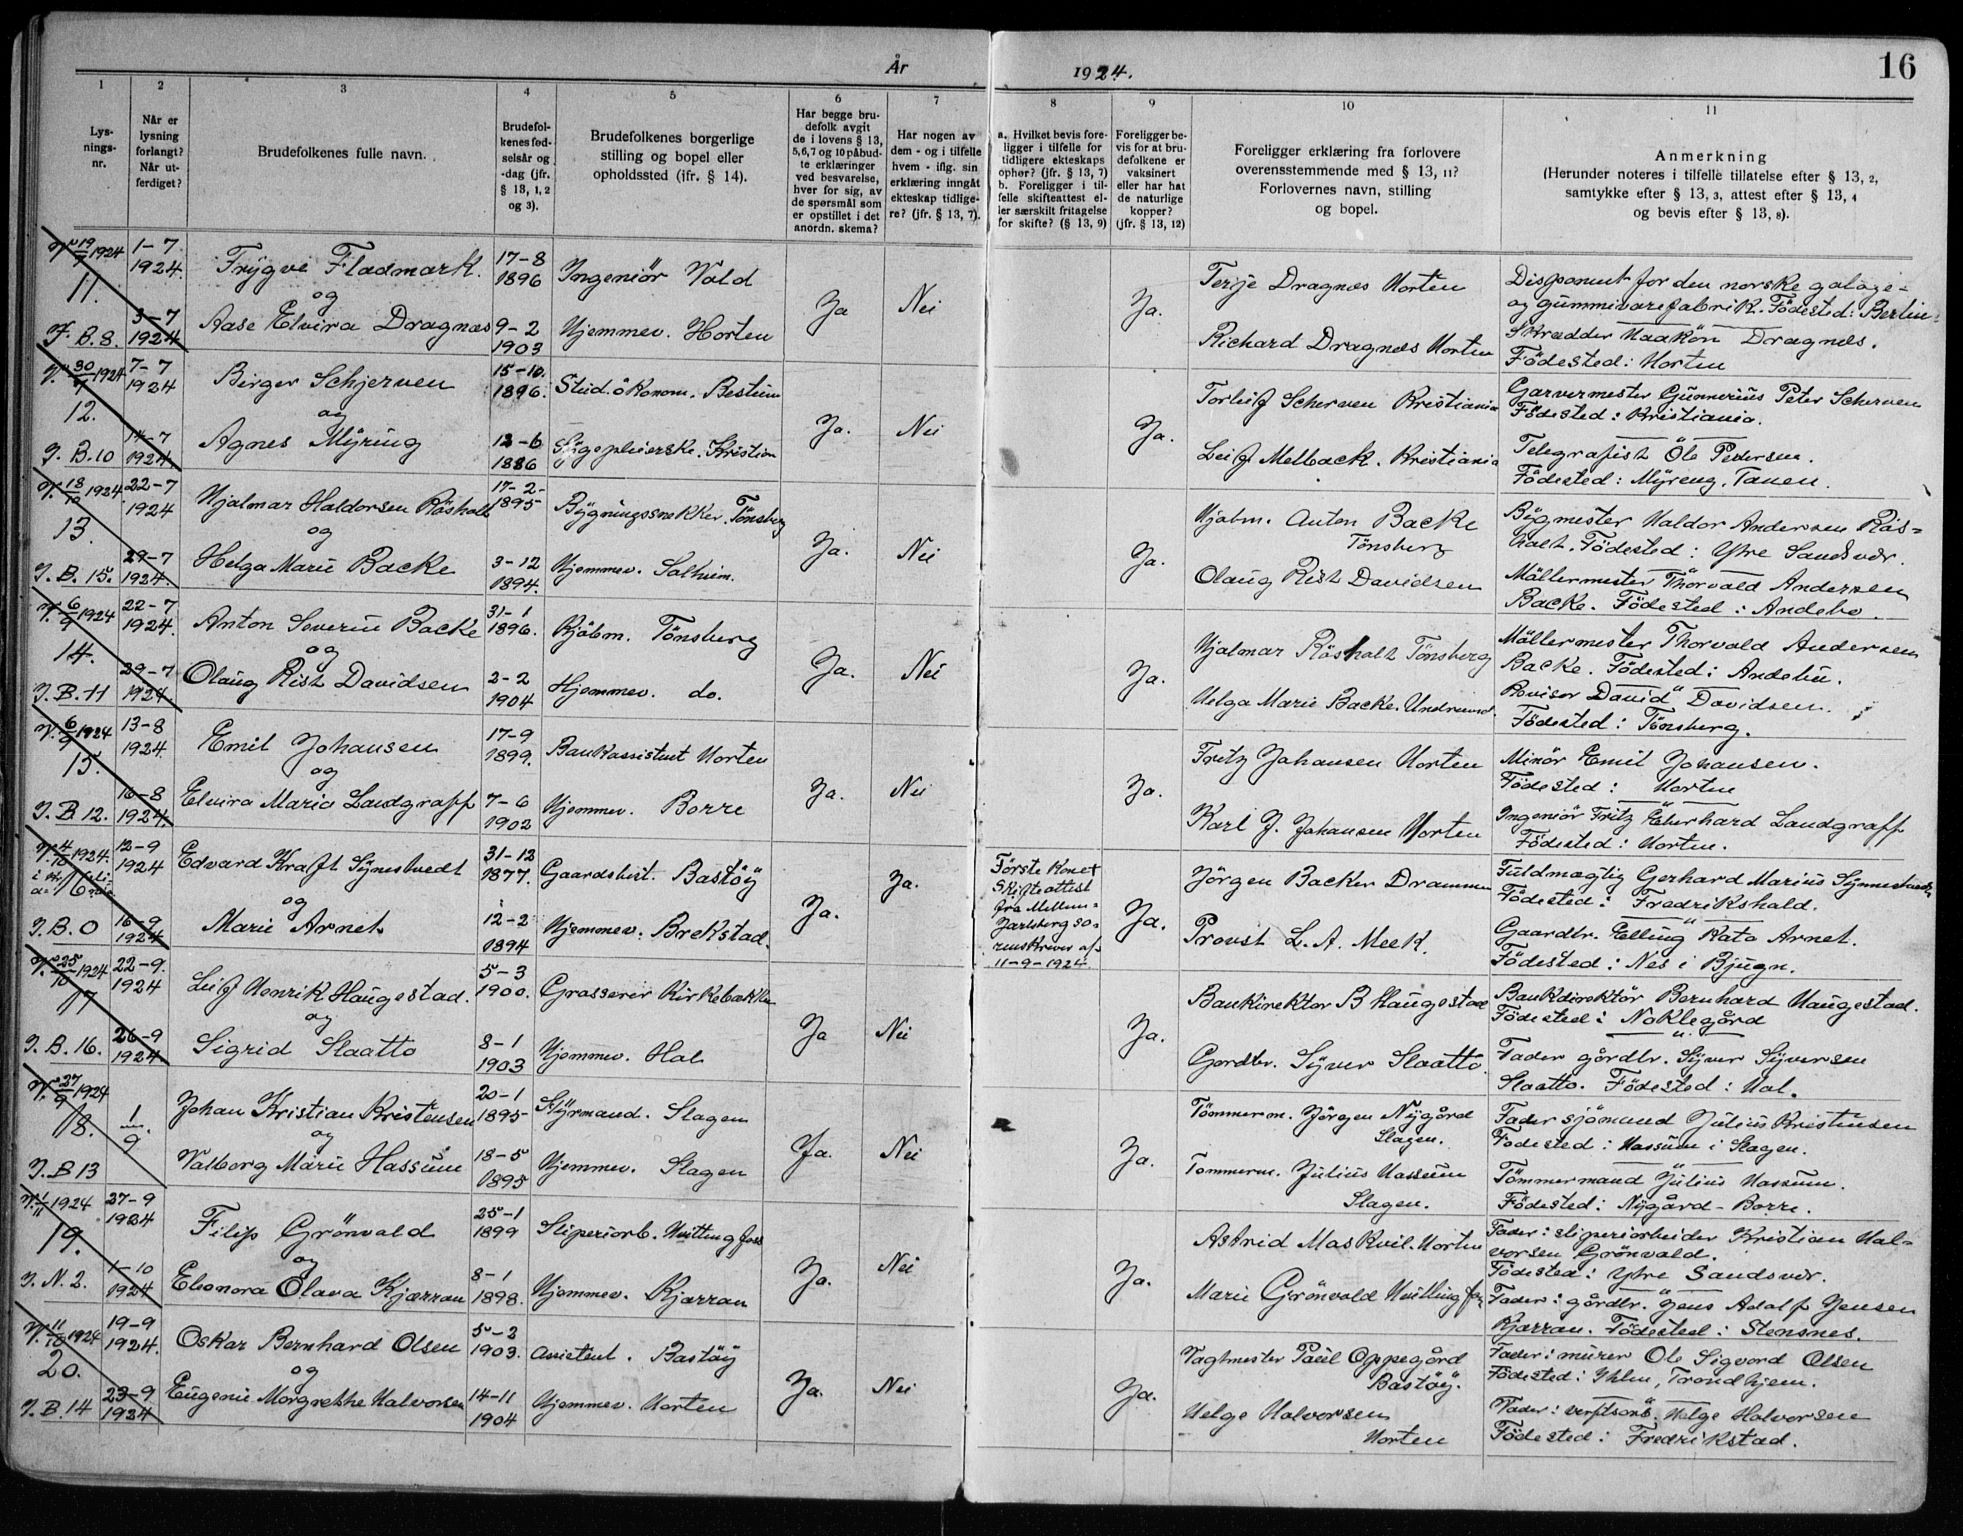 År
1924.
16
1
2
3
4
5
6
7
8
9
10
11
Lys-
nings-
nr.
Når er
lysning
forlangt?
Når ut-
ferdiget?
Brudefolkenes fulle navn.
Brudefol-
kenes fød-
selsår og
-dag (jfr.
§ 13, 1, 2
og 3).
Brudefolkenes borgerlige
stilling og bopel eller
opholdssted (jfr. § 14).
Har begge bru-
defolk avgit
de i lovens § 13,
5,6,7 og 10 påbud-
te erklæringer
ved besvarelse,
hver for sig, av
de spørsmål som
er opstillet i det
anordn. skema?
Har nogen av
dem - og i tilfelle
hvem - iflg. sin
erklæring inngått
ekteskap tidlige-
re? (jfr. § 13, 7).
a. Hvilket bevis fore-
ligger i tilfelle for
tidligere ekteskaps
ophør? (jfr. § 13, 7)
b. Foreligger i til-
felle skifteattest el-
ler særskilt fritagelse
for skifte? (§ 13, 9)
Foreligger be-
vis for at bru-
defolkene er
vaksinert
eller har hat
de naturlige
kopper?
(jfr. § 13, 12)
Foreligger erklæring fra forlovere
overensstemmende med § 13, 11?
Forlovernes navn, stilling
og bopel.
Anmerkning
(Herunder noteres i tilfelle tillatelse efter § 13, 2,
samtykke efter § 13, 3, attest efter § 13, 4
og bevis efter § 13, 8).
V. 19/7 1924
11.
F. B. 8.
1-7
1924.
3-7
1924
Trygve Fladmark.
og
Aase Elvira Dragnæs
17-8
1896
9-2
1903
Ingeniör Vold
Hjemmev. Horten
Ja
Nei
Ja.
Terje Dragnæs Horten
Richard Dragnæs Horten
Disponent for den norske galoge-
og gummivarefabrik. Födested: Berlin
Skrædder Haakon Dragnæs.
Födested: Horten
V. 30/7 1924
12.
J. B. 10
7-7
1924
14-7
1924.
Birger Schjerven
og
Agnes Myring
15-10.
1896.
13-6
1886
Stud. ökonom. Bestum
Sygepleierske. Kristian
Ja.
Nei
Ja.
Torleif Scherven Kristiania
Leif Melback. Kristiania
Garvermester Gunnerius Peter Scherven
Födested: Kristiania.
Telegrafist Ole Pedersen.
Födested: Myreng, Tanen.
V. 18/10 1924.
13.
J. B. 15.
22-7
1924
29-7
1924.
Hjalmar Haldorsen Råsholt
og
Helga Marie Backe
17-2-
1895
3-12
1894.
Bygningssnekker. Tönsberg
Hjemmev. Solheim.
Ja.
Nei
Ja.
Kjöbm. Anton Backe
Tönsberg
Olaug Rist Davidsen
Bygmester Haldor Andersen Rås-
holt. Födested: Ytre Sandsvær.
Möllermester Thorvald Andersen
Backe. Födested: Andebo.
V. 6/9 1924
14.
J. B. 11
22-7
1924.
29-7
1924.
Anton Severin Backe
og
Olaug Rist Davidsen
31-1
1896.
2-2
1904
Kjöbm. Tönsberg
Hjemmev. do.
Ja.
Nei
Ja.
Hjalmar Råsholt Tönsberg
Helga Marie Backe.
Möllermester Thorvald Andersen
Backe. Födested: Andebu.
Provisor David Davidsen.
Födested: Tönsberg.
V. 6/9 1924
15.
J. B. 12.
13-8
1924.
16-8
1924.
Emil Johansen
og
Elvira Maria Landgraff
17-9
1899.
7-6
1902
Bankassistent Horten
Hjemmev. Borre
Ja.
Nei
Ja.
Fritz Johansen Horten
Karl J. Johansen Horten
Minör Emil Johansen.
Födested: Horten
Ingeniör Fritz Eberhard Landgraff
Födested: Horten.
V. 4/10 1924.
16
J. B. 0
12-9
1924
16-9
1924
Edvard Kraft Synnestvedt
og
Marie Arnet
31-12
1877.
12-2
1894
Gaardsbest. Bastöy
Hjemmev. Brekstad.
Ja.
Ja.
Förste Kone +
Skifteattest
fra Mellem-
Jarlsberg so-
renskriver af
11-9-1924.
Ja.
Jörgen Backer Drammen
Provst L. A. Meek.
Fuldmægtig Gerhard Marius Synnestvedt
Födested: Fredrikshald.
Gaardbr. Elling Kato Arnet.
Födested: Nes i Bjugn.
V. 25/10 1924
17
J. B. 16.
22-9.
1924
26-9
1924.
Leif Henrik Haugestad.
og
Sigrid Slaatto
5-3
1900.
8-1
1903
Grosserer Kirkebakken
Hjemmev. Hol
Ja
Nei
Ja.
Bankirektor B Haugestad
Gordbr. Syver Slaatto.
Bankdirektör Bernhard Haugestad.
Födested: Noklegård
Fader gårdbr. Syver Syversen
Slaatto. Födested: Hol.
V. 27/9 1924
18.
J. B 13
1/9
Johan Kristian Kristensen
og
Valborg Marie Hassum
20-1
1895
18-5
1895
Styrmand. Slagen
Hjemmev. Slagen
Ja.
Nei
Ja.
Tömmerm. Jörgen Nygård
Slagen.
Tommerm. Julius Hassum
Slagen.
Fader sjömand Julius Kristensen
Födested: Hassum i Slagen.
Tömmermand Julius Hassum.
Födested: Nygård - Borre.
V. 1/11 1924
19.
J. N. 2.
27-9
1924
1-10
1924
Filip Grönvald
og
Eleonora Olava Kjærran
25-1
1899
8-1
1898.
Sliperiarb. Hvittingfoss
Hjemmev. Kjærran
Ja.
Nei
Ja.
Astrid Maskvil. Horten
Marie Grönvold Hvittingfos
Fader: sliperiarbeider Kristian Hal-
vorsen Grönvald.
Födested: Ytre Sandsvær.
Fader: gårdbr. Jens Adolf Jensen
Kjærran. Födested: Stensnes.
V. 11/10 1924
20.
J. B. 14
19-9
1924.
23-9
1924
Oskar Bernhard Olsen
og
Eugenie Morgrethe Halvorsen
5-2
1903.
14-11
1904
Assistent. Bastöy
Hjemmev. Horten
Ja.
Nei
Ja.
Vagtmester Paul Oppegård
Bastöy.
Helge Halvorsen
Horten
Fader: murer Ole Sigvord Olsen
Födested: Ihlen, Trondhjem.
Fader: verftsarb. Helge Halvorsen
Födested: Fredrikstad.